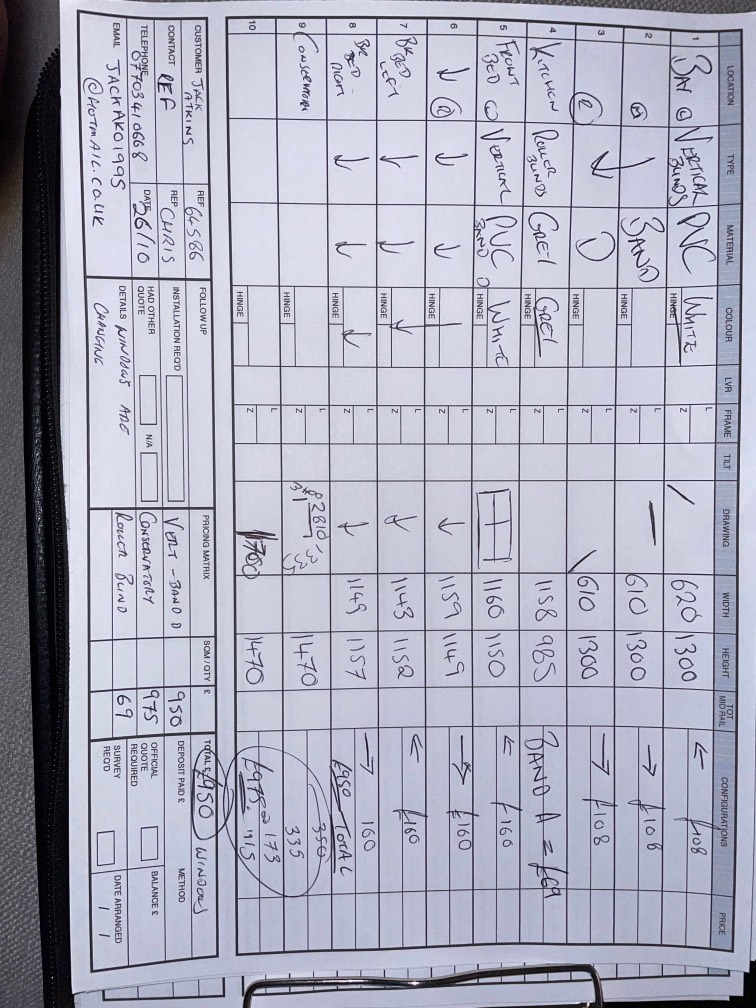 LOCATION TYPE MATERIAL COLOUR LVR FRAME TILT DRAWING WIDTH HEIGHT TOT MID RAIL CONFIGURATIONS PRICE
1 BAY VERTICAL BLINDS PVC WHITE HINGE L Z 620 1300 ← £108
2 BAND HINGE L Z 610 1300 → £108
3 D HINGE L Z 610 1300 → £108
4 KITCHEN ROLLER BLINDS GREY GREY HINGE L Z 1158 985 BAND A = £69
5 FRONT BED VERTICAL PVC BAND D WHITE HINGE L Z 1160 1150 ← £160
6 HINGE L Z 1159 1149 → £160
7 BK BED LEFT HINGE L Z 1143 1152 ← £160
8 BK BED RIGHT HINGE L Z 1149 1157 → 160
£950 TOTAL
9 CONSERVATORY HINGE L Z 2810 1470 350
335
10 HINGE L Z 1700 1470 £975
CUSTOMER JACK ATKINS REF 64586
CONTACT REF REP CHRIS
TELEPHONE 07703410668 DATE 26/10
EMAIL JACKAKO1995
@HOTMAIL.CO.UK
FOLLOW UP
INSTALLATION REQ'D
HAD OTHER QUOTE N/A
DETAILS WINDOWS ARE
CHANGING
PRICING MATRIX SQM / QTY £
VERT - BAND D 950
CONSERVATORY 975
ROLLER BLIND 69
TOTAL £ £950 WINDOWS
DEPOSIT PAID £ METHOD
OFFICIAL QUOTE REQUIRED BALANCE £
SURVEY REQ'D DATE ARRANGED / /